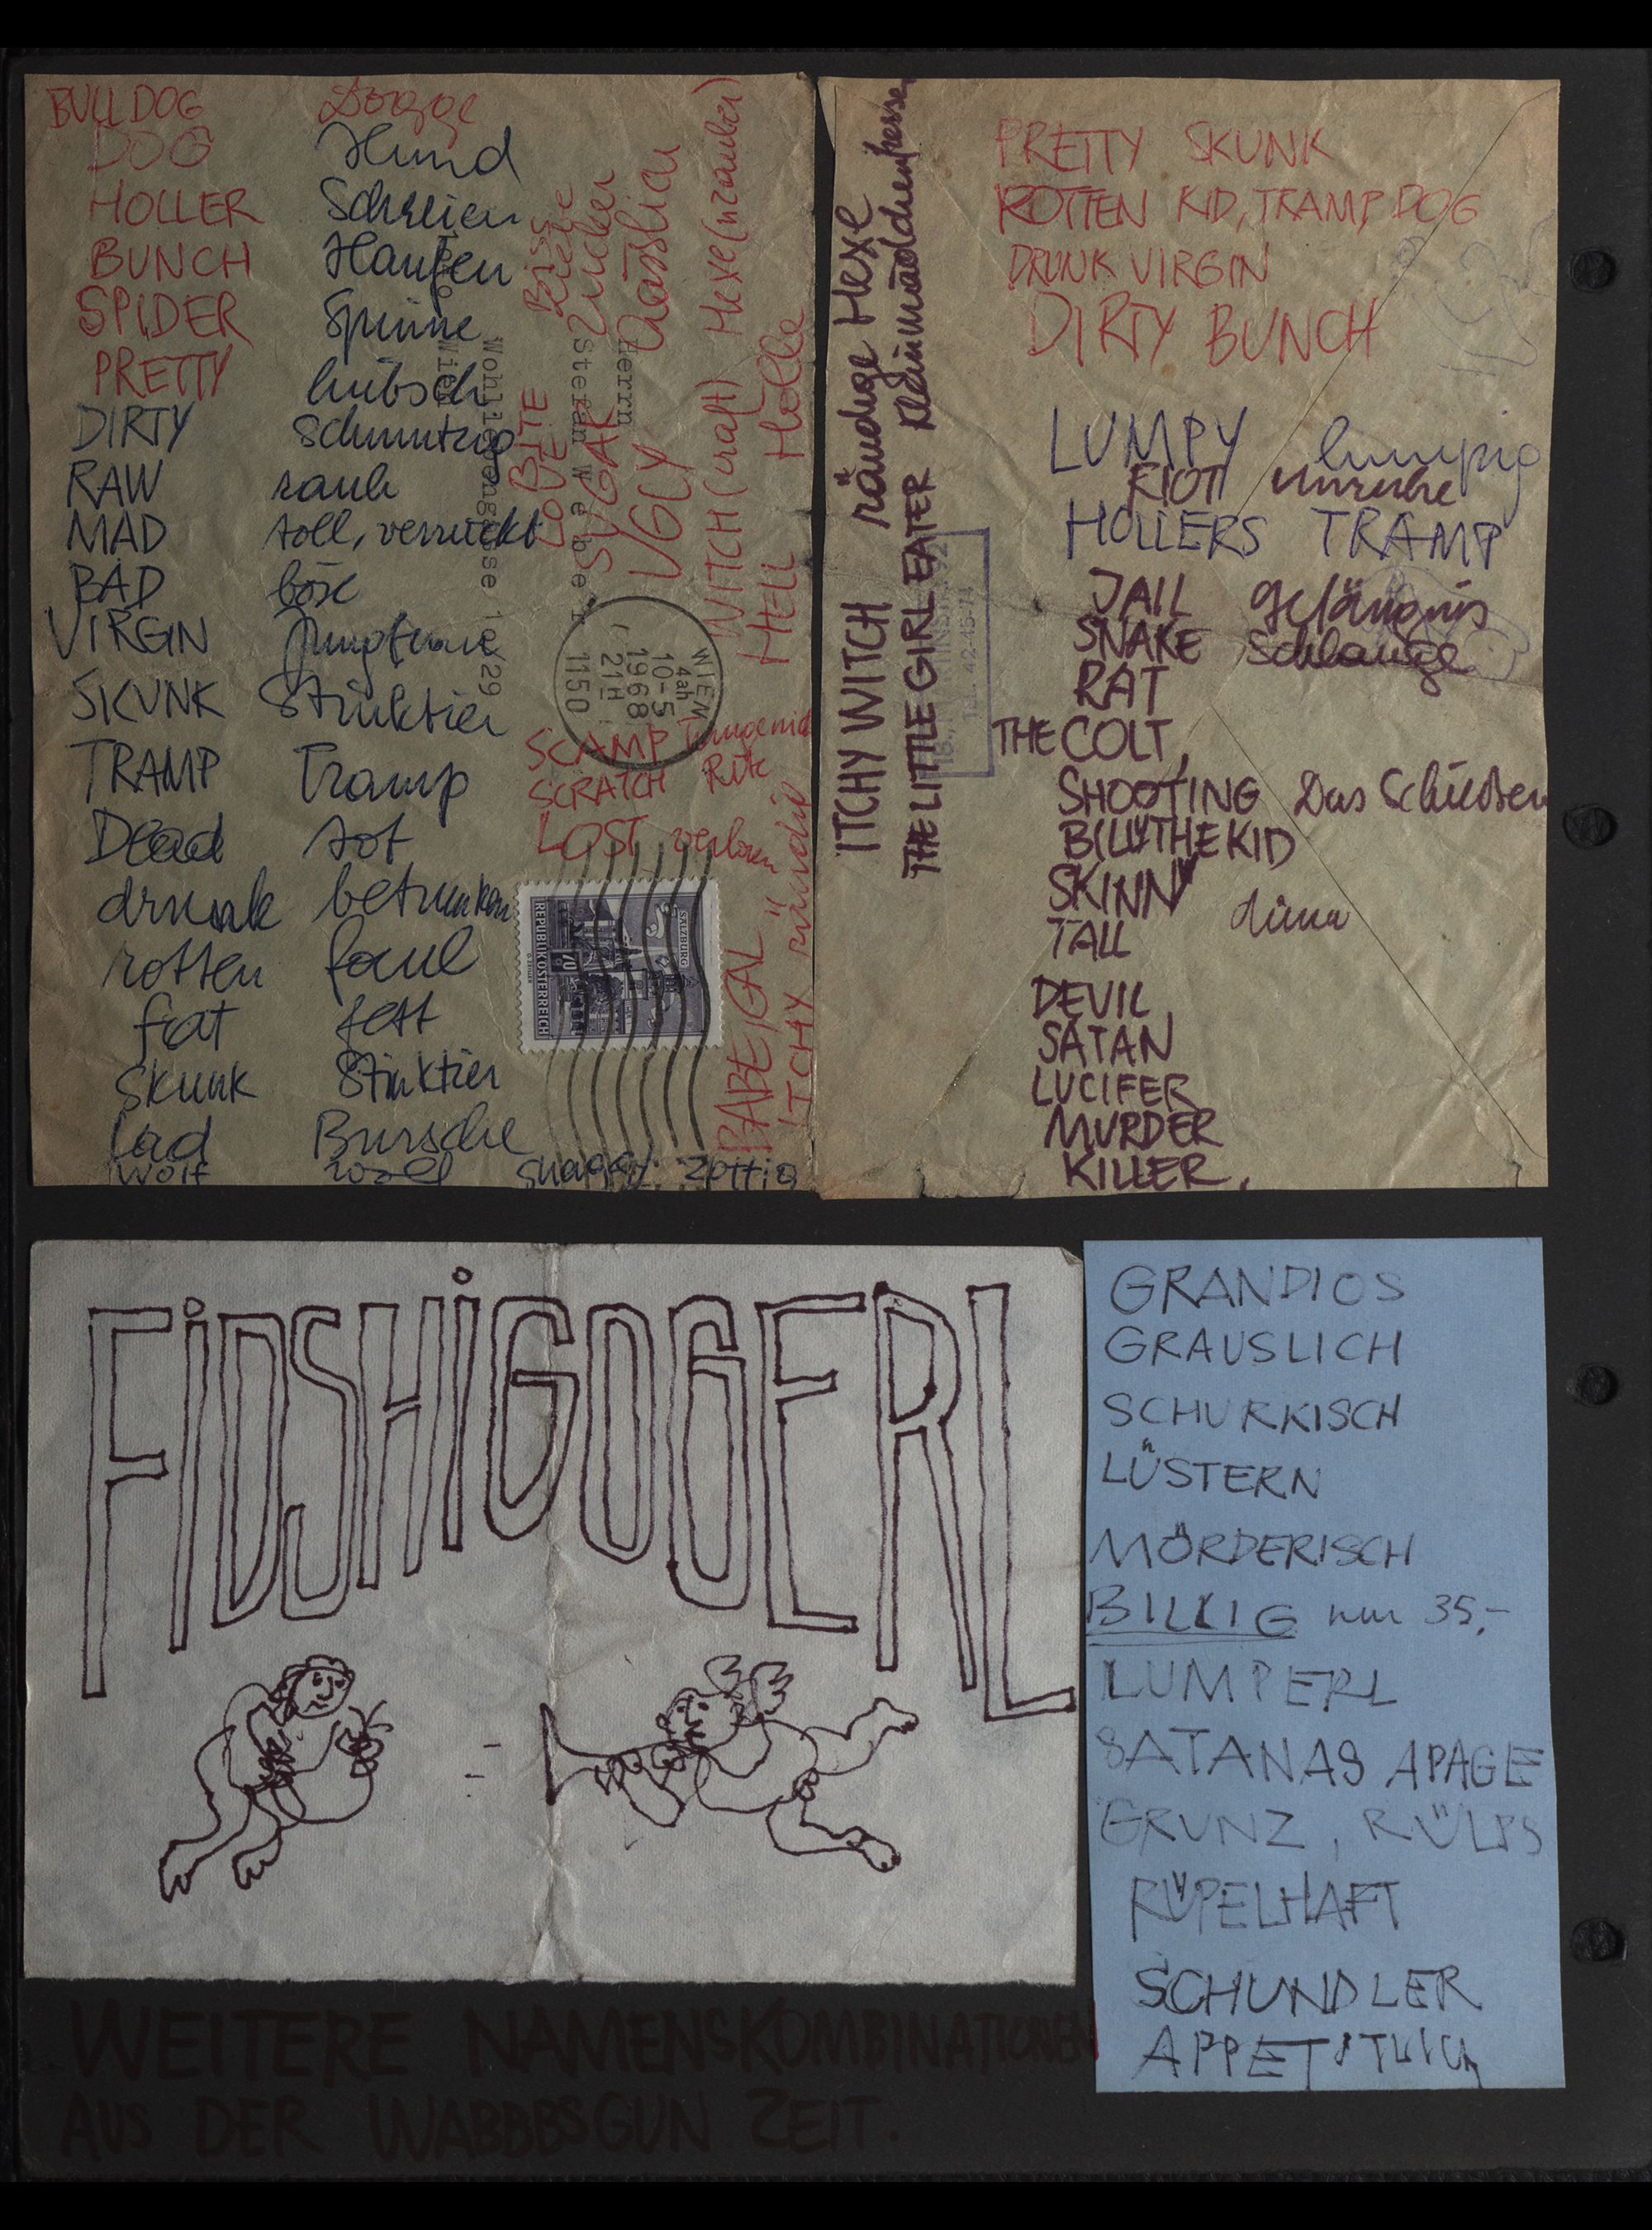 BULLDOG Dogge
DOG Hund
HOLLER Schreien
BUNCH Haufen
SPIDER Spinne
PRETTY hübsch
DIRTY schmutzig
RAW rauh
MAD toll, verrückt
BAD böse
VIRGIN Jungfrau
SKUNK Stinktier
TRAMP Tramp
Dead tot
drunk betrunken
rotten faul
fat fett
skunk Stinktier
lad Bursche
Wolf
shaggy: zottig
BITE Biss
LOVE Liebe
SUGAR Zucker
UGLY hässlich
WITCH (craft) Hexe(nzauber)
HELL Hölle
Herrn
Stefan Weber
Wohllebengasse 10/29
Wien
WIEN
4ah
10-5
1968
21H
1150
SCAMP
SCRATCH Ritz
LOST verloren
BABE, GAL
ITCHY räudig
SALZBURG
70
REPUBLIK ÖSTERREICH
ITCHY WITCH räudige Hexe
THE LITTLE GIRL EATER Kleinmädchenfresser
42-45-74
PRETTY SKUNK
ROTTEN KID, TRAMP DOG
DRUNK VIRGIN
DIRTY BUNCH
LUMPY lumpig
RIOT Unruhe
HOLLERS TRAMP
JAIL Gefängnis
SNAKE Schlange
RAT
THE COLT,
SHOOTING Das Schießen
BILLY THE KID
SKINNY dünn
TALL
DEVIL
SATAN
LUCIFER
MURDER
KILLER.
FIDSHIGOGERL
GRANDIOS
GRAUSLICH
SCHURKISCH
LÜSTERN
MÖRDERISCH
BILLIG nur 35,-
LUMPERL
SATANAS APAGE
GRUNZ, RÜLPS
RÜPELHAFT
SCHUNDLER
APPETITLICH
WEITERE NAMENSKOMBINATIONEN
AUS DER WABBBSGUN ZEIT.